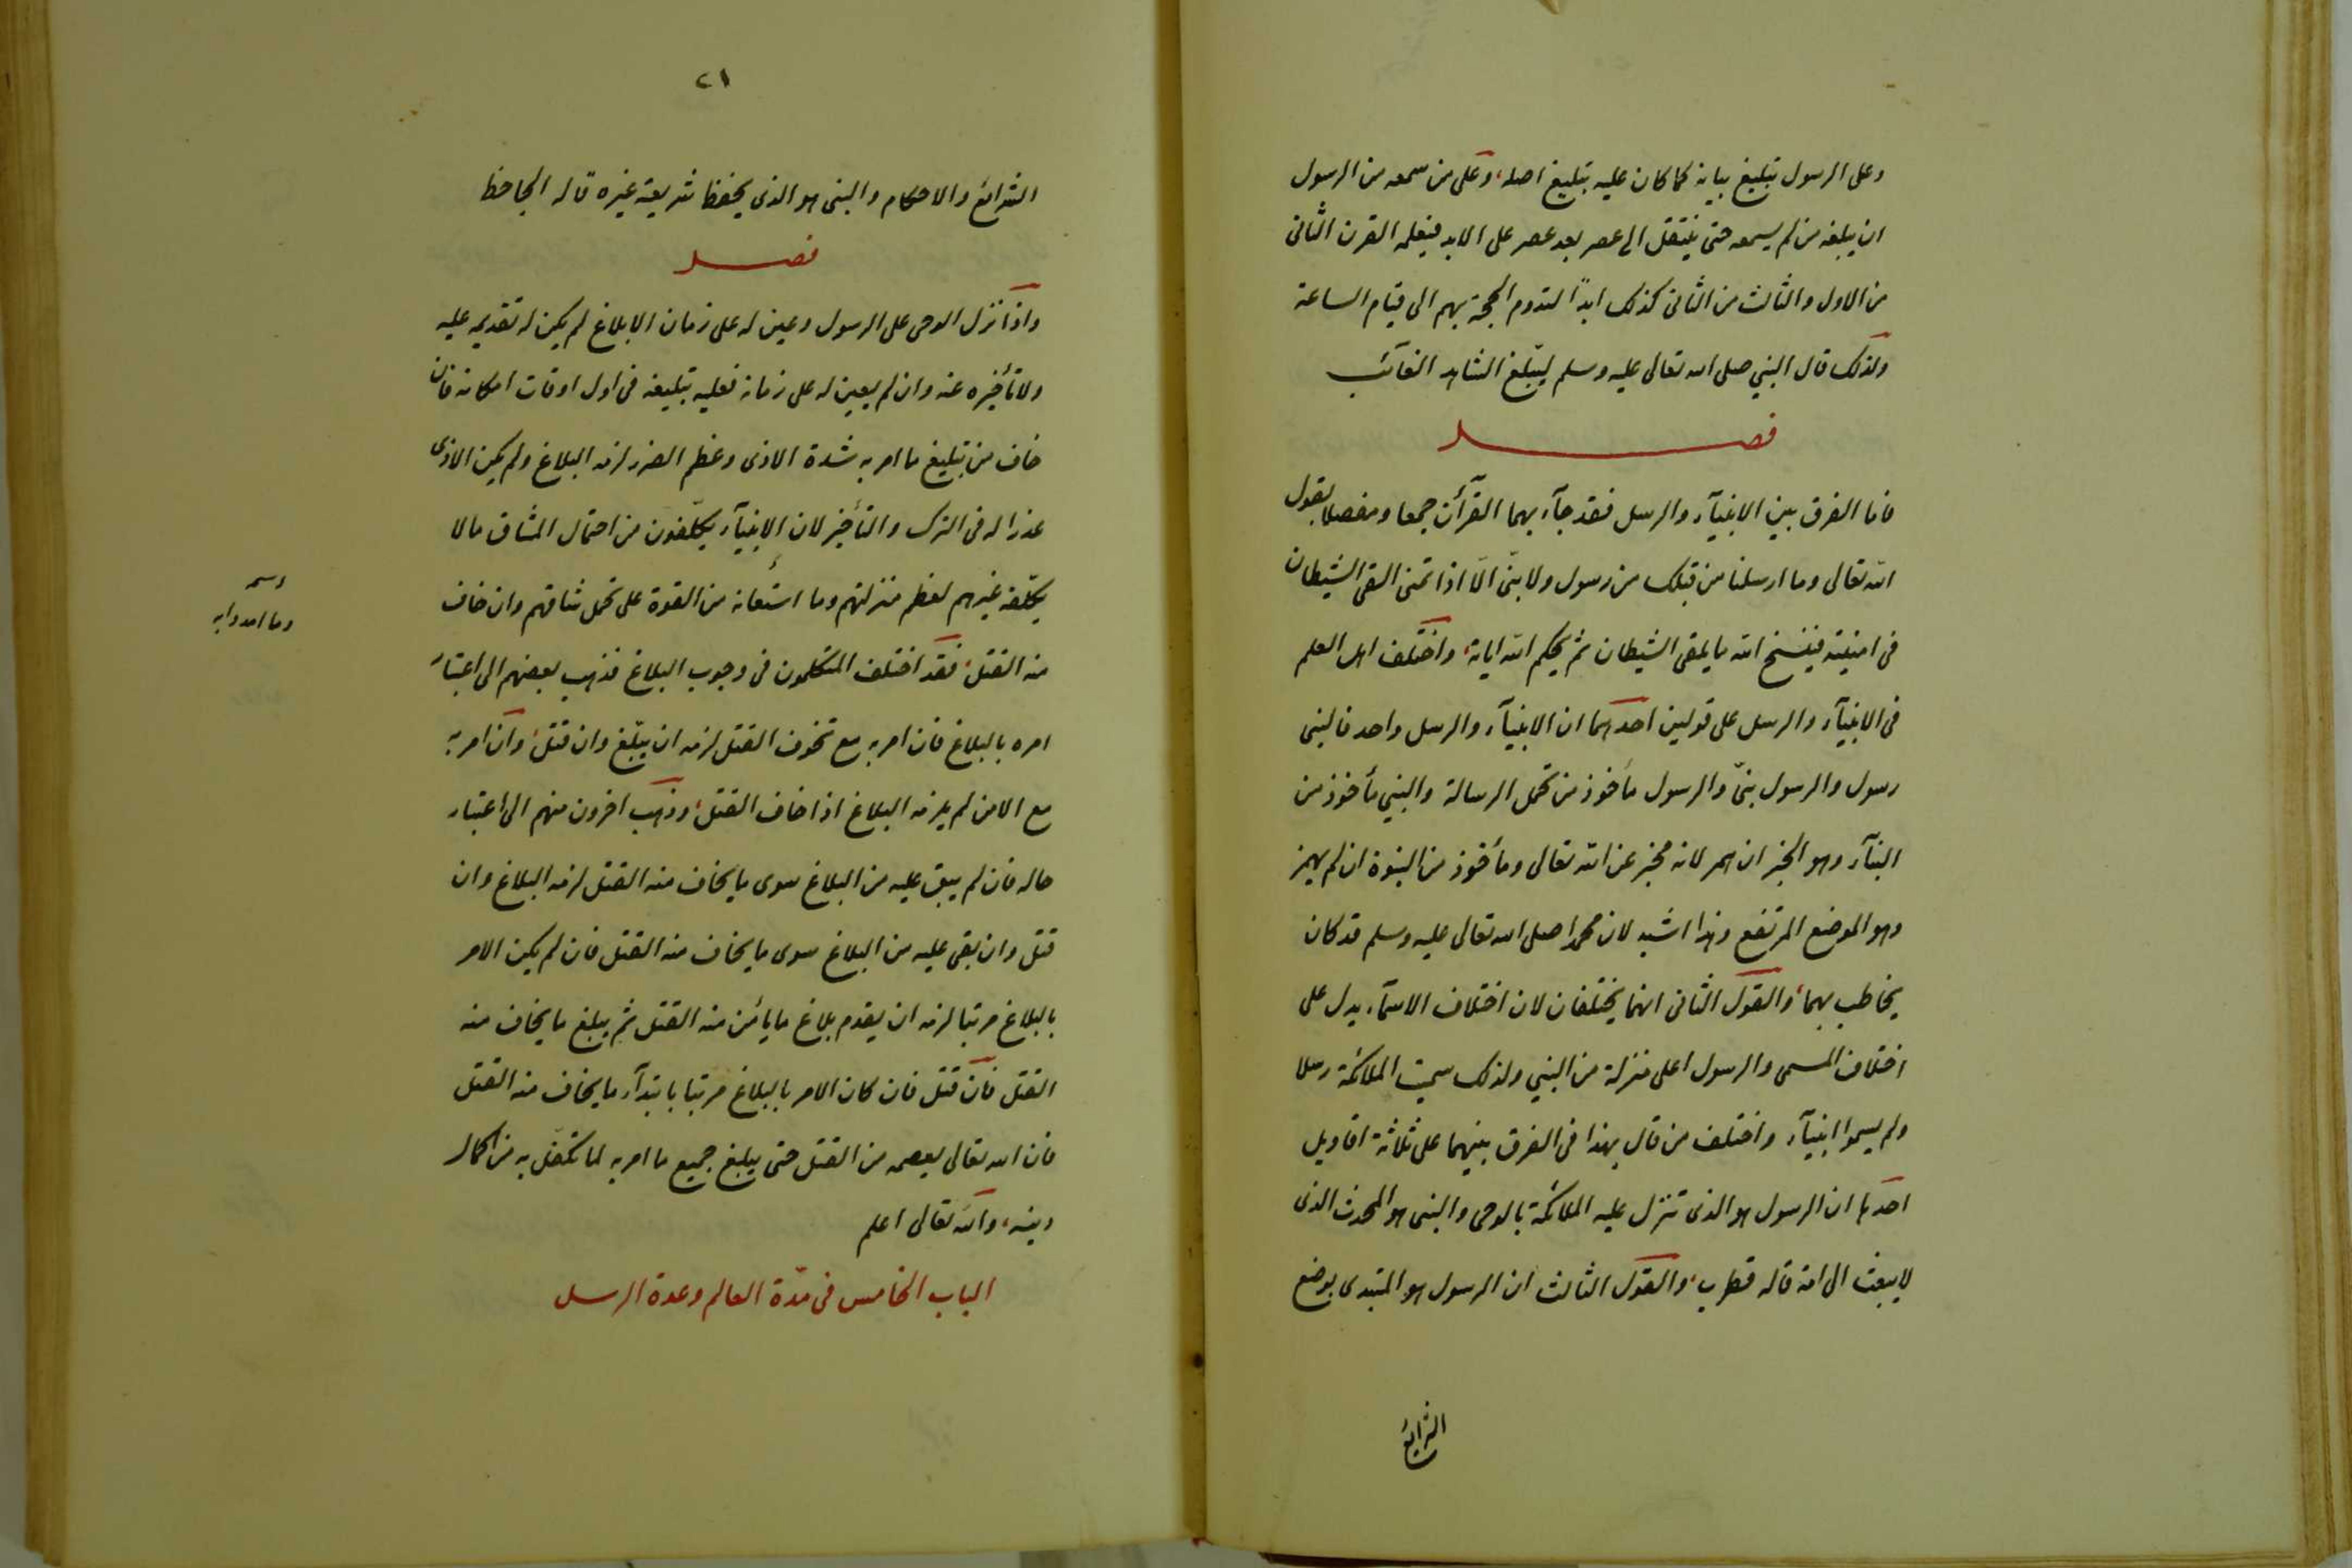 وعلى الرسول تبليغ بيانه كما كان عليه تبليغ اصله، وعلى من سمعه من الرسول
ان يبلغه من لم يسمعه حتى ينتقل الى عصر بعد عصر على الابد فيعلمه القرن الثانى
من الاول والثالث من الثانى كذلك ابدًا لتدوم الحجة بهم الى قيام الساعة
ولذلك قال النبي صلى الله تعالى عليه وسلم ليبلّغ الشاهد الغآئب
فصـــل
فاما الفرق بين الانبيآء والرسل فقد جآء بهما القرآن جمعا ومفصلا بقول
الله تعالى وما ارسلنا من قبلك من رسول ولا نبىّ الّا اذا تمنى القى الشيطان
فى امنيته فينسخ الله ما يلقى الشيطان ثم يحكم الله اياته، واختلف اهل العلم
فى الانبيآء والرسل على قولين احدهما ان الانبيآء والرسل واحد فالنبى
رسول والرسول نبىّ والرسول مأخوذ من تحمل الرسالة والنبي مأخوذ من
النبآء وهو الخبر ان همر لانه مخبر عن الله تعالى ومأخوذ من النبوة ان لم يهمز
وهو الموضع المرتفع وهذا اشبه لان محمدا صلى الله تعالى عليه وسلم قد كان
يخاطب بهما، والقول الثانى انهما يختلفان لان اختلاف الاسمآء يدل على
اختلاف المسمى والرسول اعلى منزلة من النبي ولذلك سميت الملائكة رسلا
ولم يسموا انبيآء واختلف من قال بهذا فى الفرق بينهما على ثلاثة اقاويل
احدها ان الرسول هو الذى تنزل عليه الملائكة بالوحى والنبى هو المحدث الذى
لا يبعث الى امة قاله قطرب، والقول الثالث ان الرسول هو المبتدى بوضع
الشرايع
٢١
الشرائع والاحكام والنبى هو الذى يحفظ شريعة غيره قاله الجاحظ
فصـــل
واذا نزل الوحى على الرسول وعين له على زمان الابلاغ لم يكن له تقديمه عليه
ولا تأخيره عنه وان لم يعين له على زمانه فعليه تبليغه فى اول اوقات امكانه فان
خاف من تبليغ ما امر به شدة الاذى وعظم الضرر لزمه البلاغ ولم يكن الاذى
عذرا له فى الترك والتأخير لان الانبيآء يكلّفون من احتمال المشاق مالا
يكلّفه غيرهم لعظم منزلتهم وما استعانه من القوة على تحمل مشاقهم وان خاف
منه القتل، فقد اختلف المتكلمون فى وجوب البلاغ فذهب بعضهم الى اعتبار
امره بالبلاغ فان امر به مع تخوف القتل لزمه ان يبلّغ وان قتل، وان امر به
مع الامن لم يلزمه البلاغ اذا خاف القتل، وذهب اخرون منهم الى اعتبار
حاله فان لم يبق عليه من البلاغ سوى ما يخاف منه القتل لزمه البلاغ وان
قتل وان بقى عليه من البلاغ سوى ما يخاف منه القتل فان لم يكن الامر
بالبلاغ مرتبا لزمه ان يقدم بلاغ ما يأمن منه القتل ثم يبلغ ما يخاف منه
القتل فان قتل فان كان الامر بالبلاغ مرتبا بابتدآء ما يخاف منه القتل
فان الله تعالى يعصمه من القتل حتى يبلغ جميع ما امر به لما تكفّل به من اكمال
دينه، والله تعالى اعلم
الباب الخامس فى مدّة العالم وعدة الرسل